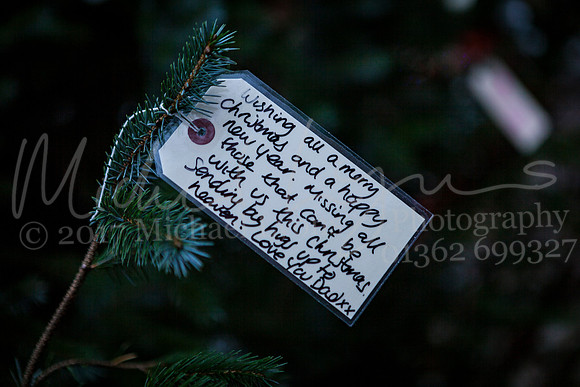 Wishing all a merry
Christmas and a happy
new year. Missing all
those that can't be
with us this christmas
Sending big hugs up to
heaven. Love you Dad xx
Photography
01362 699327